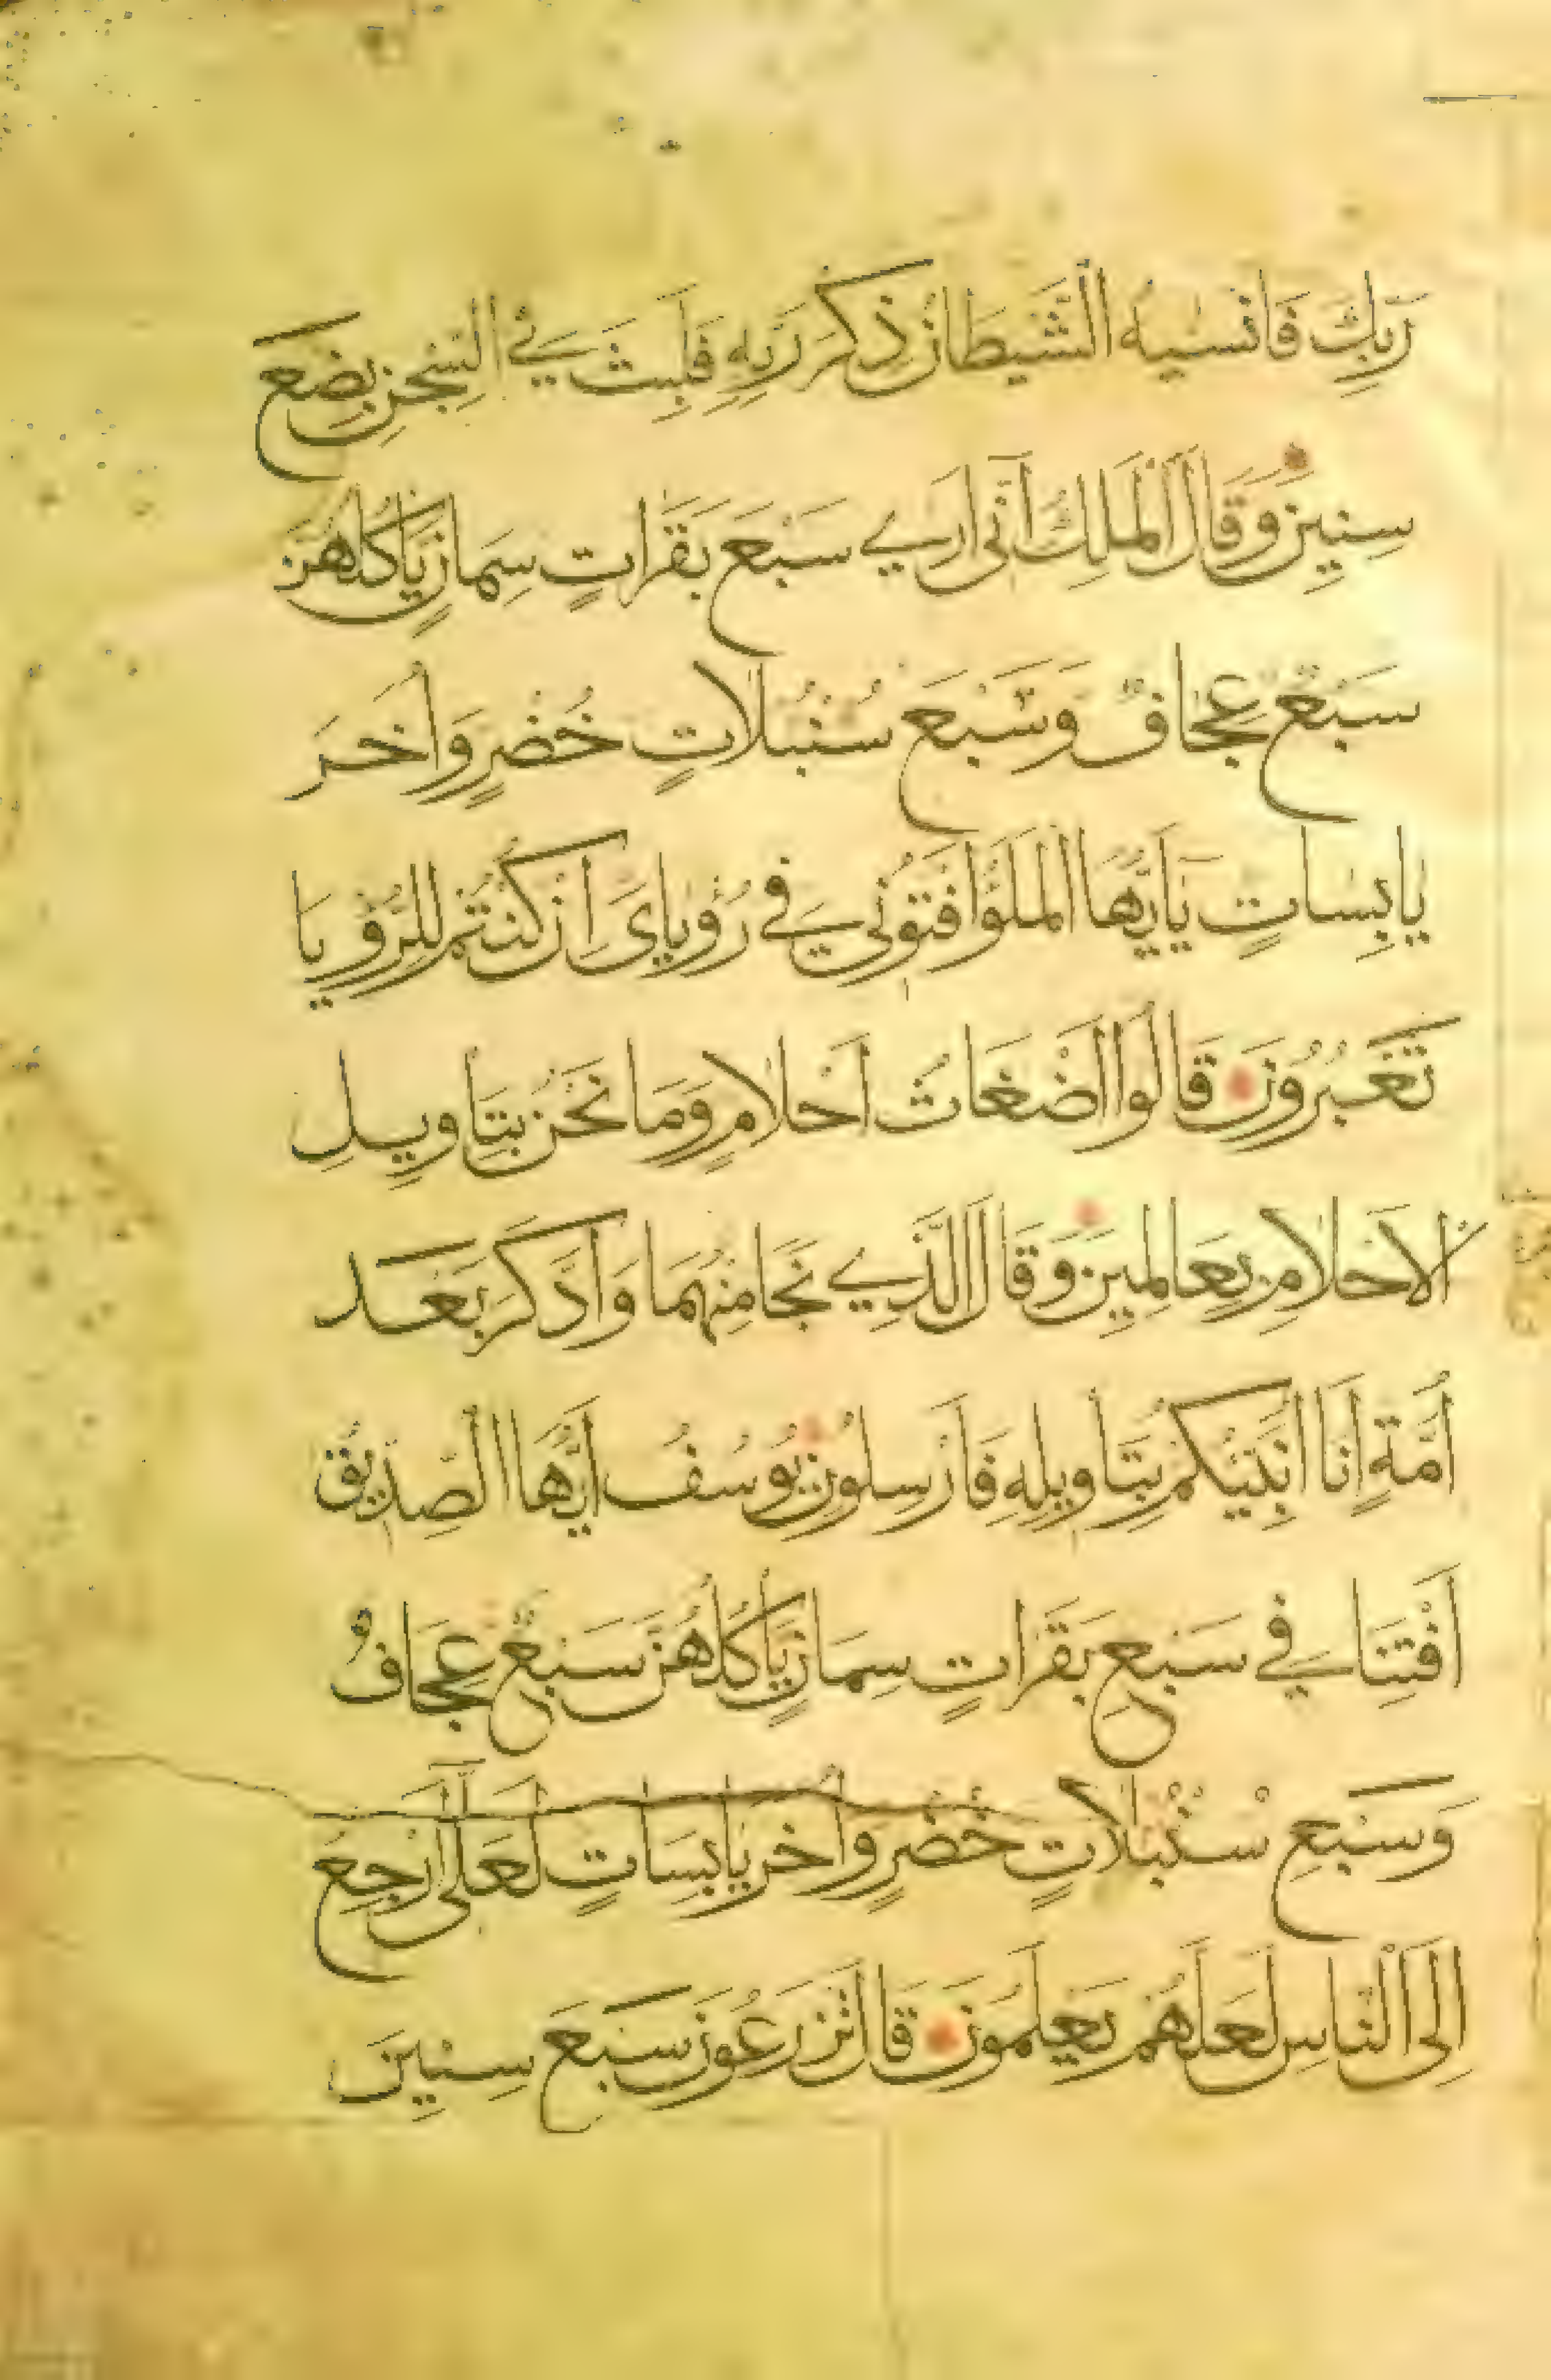 رَبِّكَ فَانْسٰيهُ الشَّيْطَانُ ذِكْرَ رَبِّهِ فَلَبِثَ فِي السِّجْنِ بِضْعَ
سِنِينَ وَقَالَ الْمَلِكُ اِنِّي اَرٰي سَبْعَ بَقَرَاتٍ سِمَانٍ يَأْكُلُهُنَّ
سَبْعٌ عِجَافٌ وَسَبْعَ سُنْبُلَاتٍ خُضْرٍ وَاُخَرَ
يَابِسَاتٍ يَآ اَيُّهَا الْمَلَؤُا افْتُونِي فِي رُؤْيَايَ اِنْ كُنْتُمْ لِلرُّؤْيَا
تَعْبُرُونَ قَالُوا اَضْغَاثُ اَحْلَامٍ وَمَا نَحْنُ بِتَأْوِيلِ
الْاَحْلَامِ بِعَالِمِينَ وَقَالَ الَّذِي نَجَا مِنْهُمَا وَادَّكَرَ بَعْدَ
اُمَّةٍ اَنَا اُنَبِّئُكُمْ بِتَأْوِيلِهِ فَاَرْسِلُونِ يُوسُفُ اَيُّهَا الصِّدِّيقُ
اَفْتِنَا فِي سَبْعِ بَقَرَاتٍ سِمَانٍ يَأْكُلُهُنَّ سَبْعٌ عِجَافٌ
وَسَبْعِ سُنْبُلَاتٍ خُضْرٍ وَاُخَرَ يَابِسَاتٍ لَعَلِّي اَرْجِعُ
اِلَى النَّاسِ لَعَلَّهُمْ يَعْلَمُونَ قَالَ تَزْرَعُونَ سَبْعَ سِنِينَ